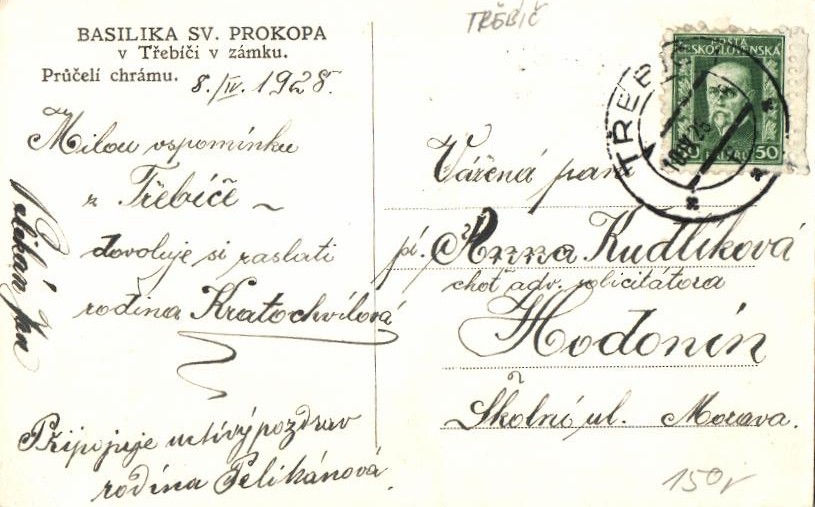 TŘEBÍČ
BASILIKA SV. PROKOPA
v Třebíči v zámku.
Průčelí chrámu.
8./IV. 1928.
Milou vspomínku
z Třebíče
dovoluje si zaslati
rodina Kratochvílová
Pelikán Jan
Připojuje uctivý pozdrav
rodina Pelikánová.
POŠTA
ČESKOSLOVENSKA
50
TŘEBÍČ
Vážená paní
pí. Anna Kudlíková
choť adv. solicitátora
Hodonín
Školní ul. Morava.
150,-